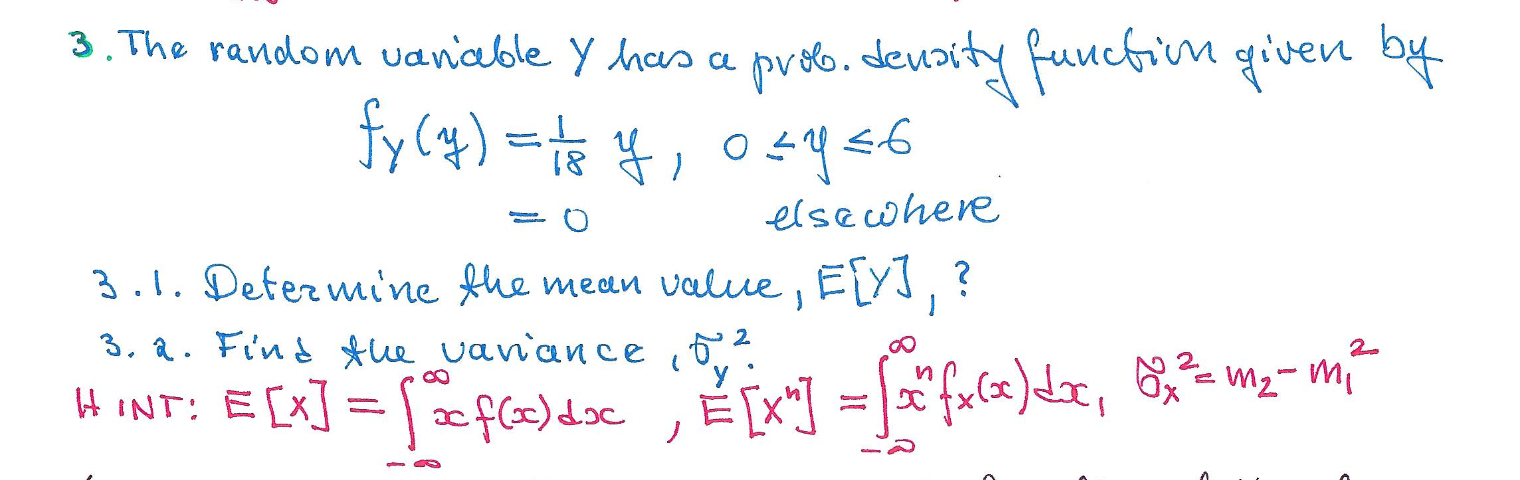 3. The random variable Y has a prob. density function given by
f_Y(y) = 1/18 y, 0 ≤ y ≤ 6
= 0 elsewhere
3.1. Determine the mean value, E[Y], ?
3.2. Find the variance, σ_Y^2.
HINT: E[X] = ∫_{-∞}^{∞} x f(x) dx, E[X^n] = ∫_{-∞}^{∞} x^n f_X(x) dx, σ_X^2 = m_2 - m_1^2